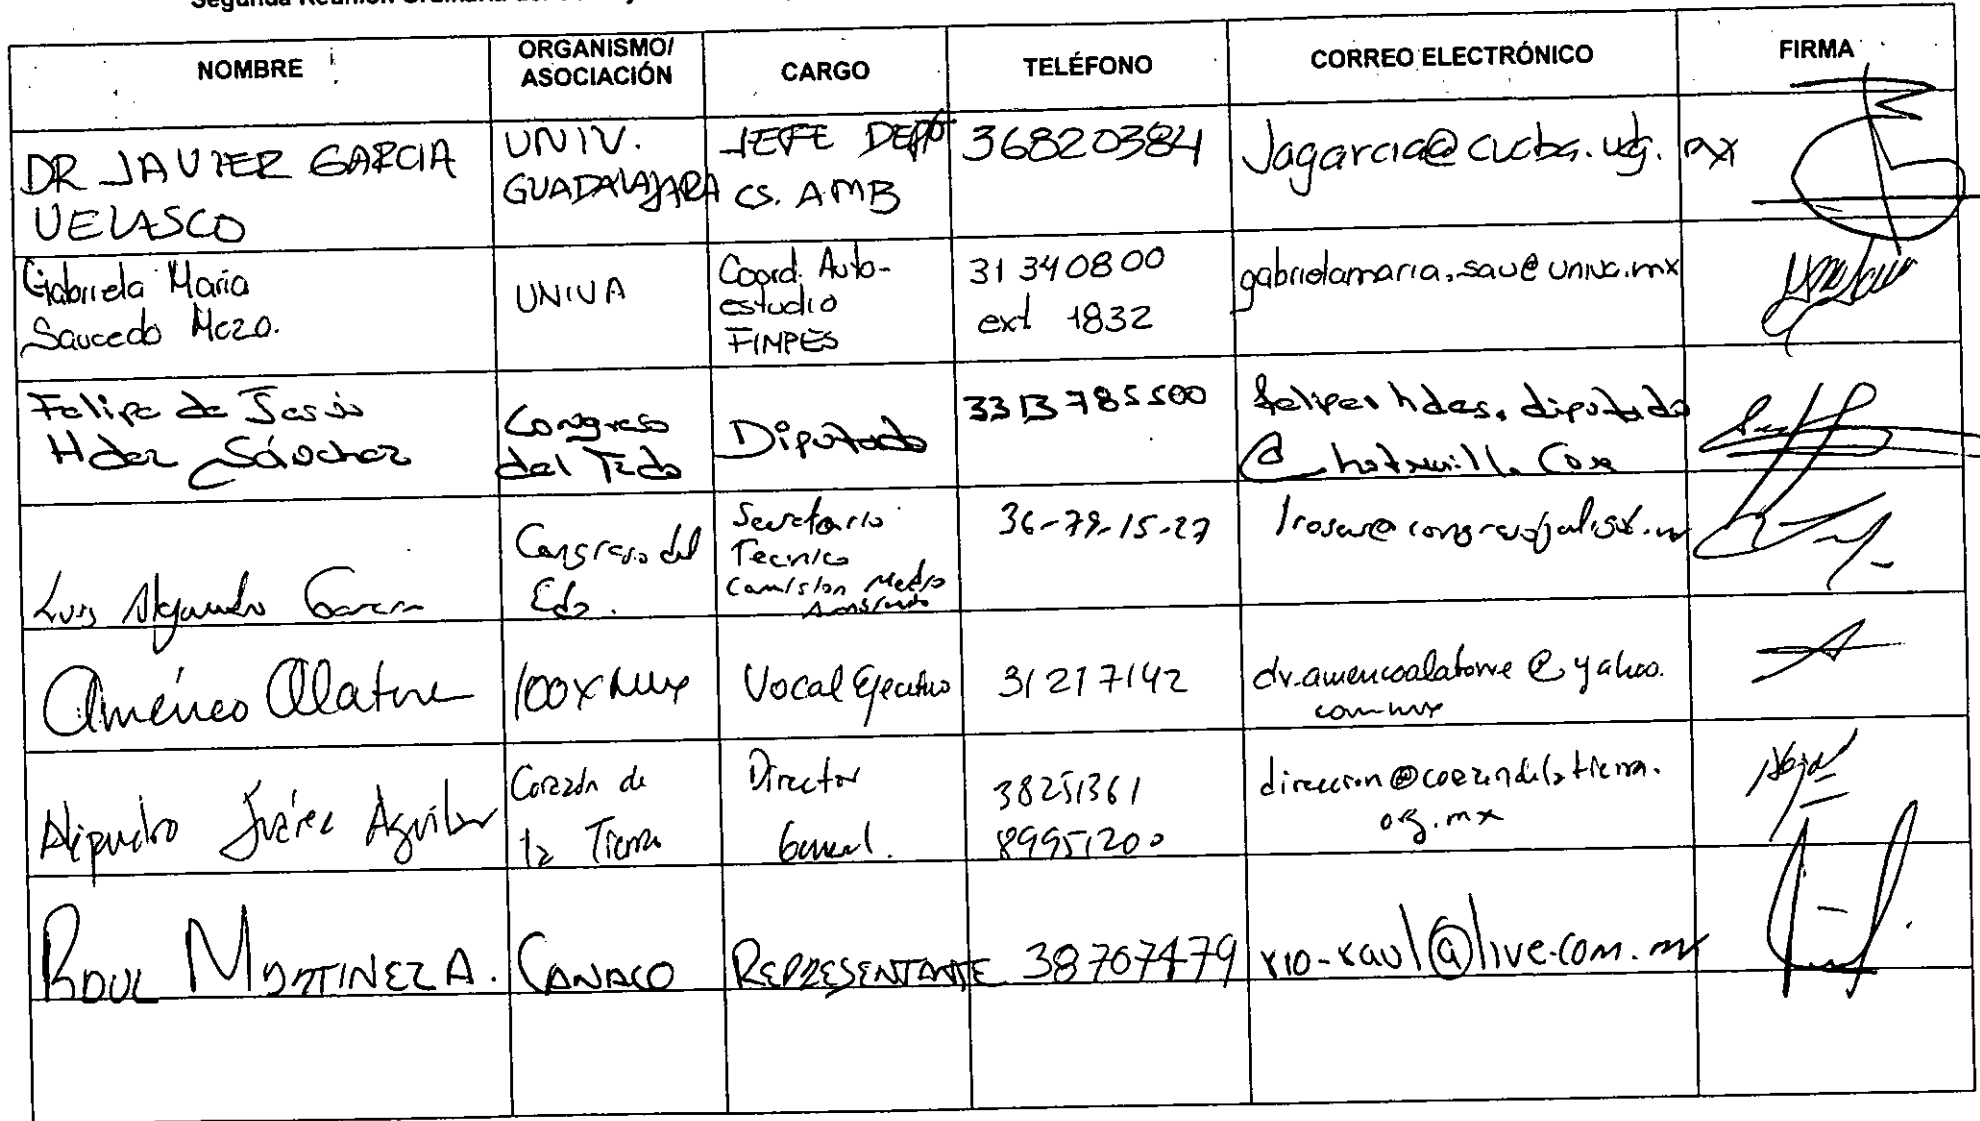 Segunda Reunión Ordinaria del
NOMBRE
ORGANISMO/
ASOCIACIÓN
CARGO
TELÉFONO
CORREO ELECTRÓNICO
FIRMA
DR JAVIER GARCIA
VELASCO
UNIV.
GUADALAJARA
JEFE DEPTO
CS. AMB
36820384
Jagarcia@cucba.udg.mx
Gabriela Maria
Saucedo Mczo.
UNIVA
Coord. Auto-
estudio
FIMPES
31340800
ext 1832
gabrielamaria.sau@univa.mx
Felipe de Jesús
Hdez Sánchez
Congreso
del Edo
Diputado
3313785500
@hotmail.com
Luis Alejandro Garcia
Congreso del
Edo.
Secretario
Tecnico
Comision Medio
Ambiente
36-79-15-27
Américo Alatorre
100xMex
Vocal Ejecutivo
31217142
dr.americoalatorre@yahoo.
com.mx
Alejandro Juárez Aguilar
Corazón de
la Tierra
Director
General.
38251361
89951200
direccion@corazondelatierra.
org.mx
RAUL MARTINEZ A.
CANACO
REPRESENTANTE
38707479
rio-raul@live.com.mx